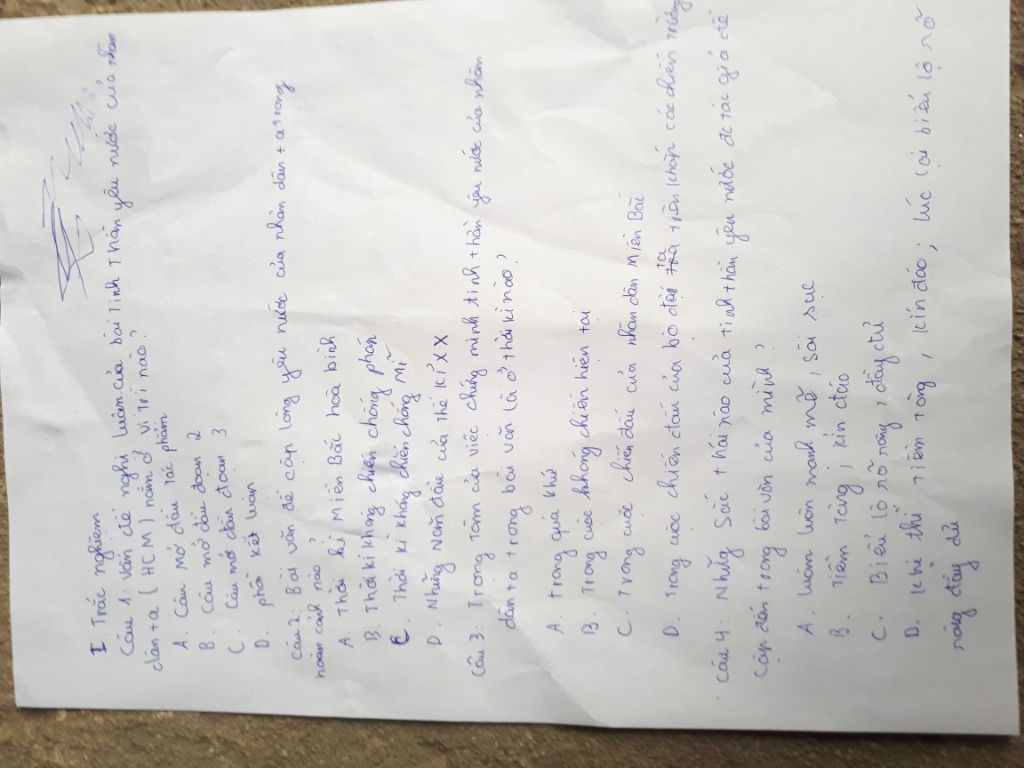 I. Trắc nghiệm
Câu 1: Vấn đề nghị luận của bài Tinh thần yêu nước của nhân
dân ta (HCM) nằm ở vị trí nào?
A. Câu mở đầu tác phẩm
B. Câu mở đầu đoạn 2
C. Câu mở đầu đoạn 3
D. phần kết luận
Câu 2: Bài văn đề cập lòng yêu nước của nhân dân ta trong
hoàn cảnh nào?
A. Thời kì Miền Bắc hoà bình
B. Thời kì kháng chiến chống pháp
C. Thời kì kháng chiến chống Mĩ
D. Những năm đầu của thế kỉ XX
Câu 3: Trọng tâm của việc chứng minh tinh thần yêu nước của nhân
dân ta trong bài văn là ở thời kì nào?
A. Trong quá khứ
B. Trong cuộc kháng chiến hiện tại
C. Trong cuộc chiến đấu của nhân dân Miền Bắc
D. Trong cuộc chiến đấu của bộ đội ta trên khắp các chiến trường
Câu 4: Những sắc thái nào của tinh thần yêu nước đc tác giả đề
cập đến trong bài văn của mình?
A. luôn luôn mạnh mẽ, sôi sục
B. Tiềm tàng, kín đáo
C. Biểu lộ rõ ràng, đầy đủ
D. khi thì tiềm tàng, kín đáo; lúc lại biểu lộ rõ
ràng đầy đủ